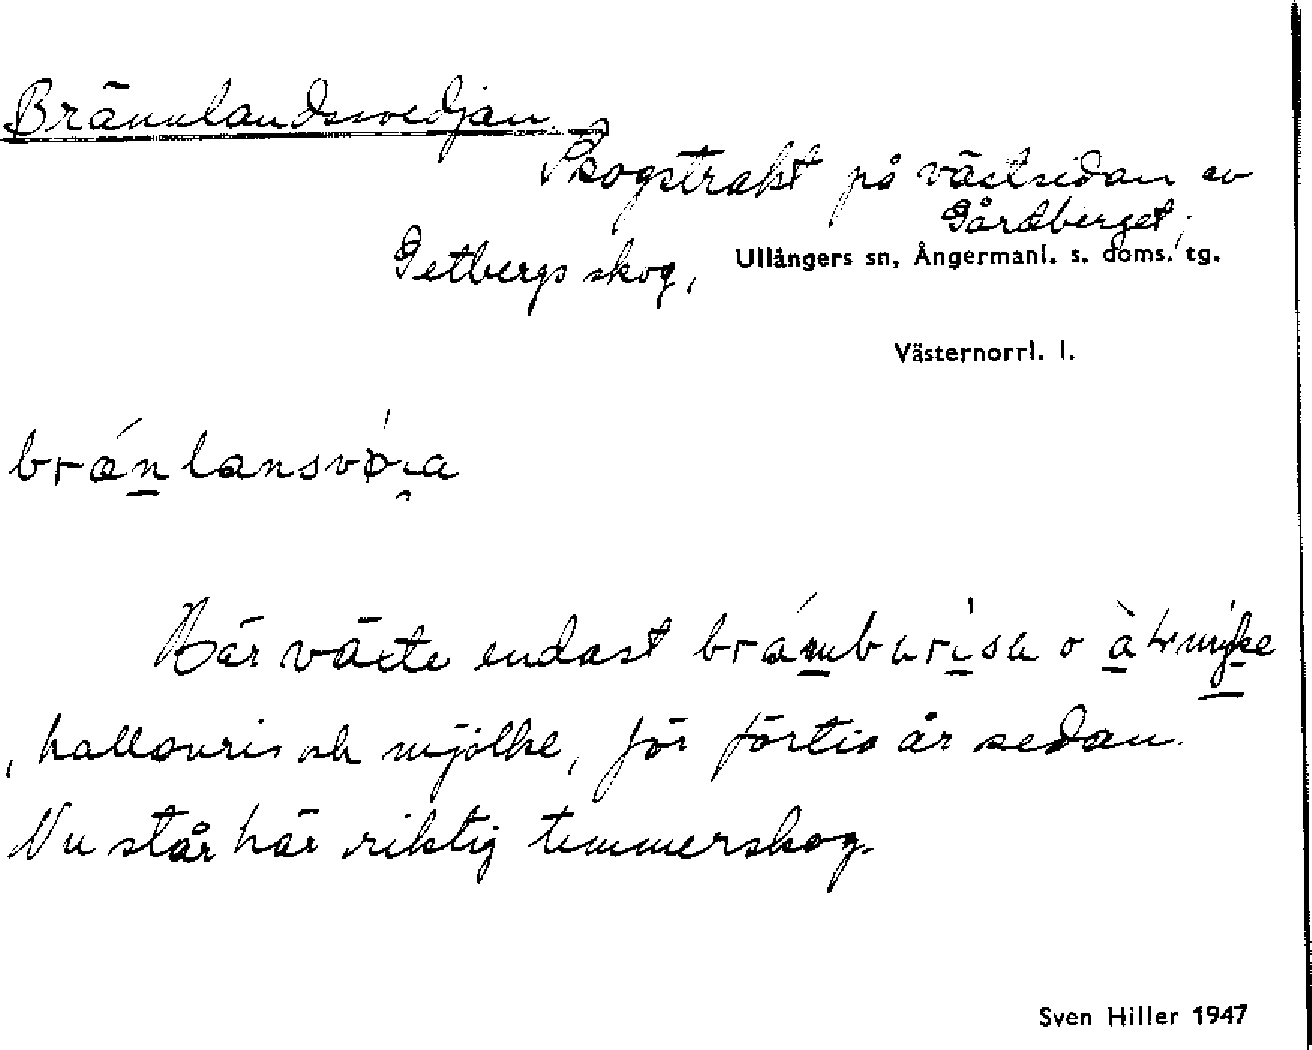 Brännlandsvedjan
Skogstrakt på västsidan av
Gårdberget,
Getbergs skog, Ullångers sn, Ångermanl. s. doms. tg.
Västernorrl. l.
Här växte endast
, hallonris och mjölke, för förtio år sedan.
Nu står här riktig timmerskog.
Sven Hiller 1947